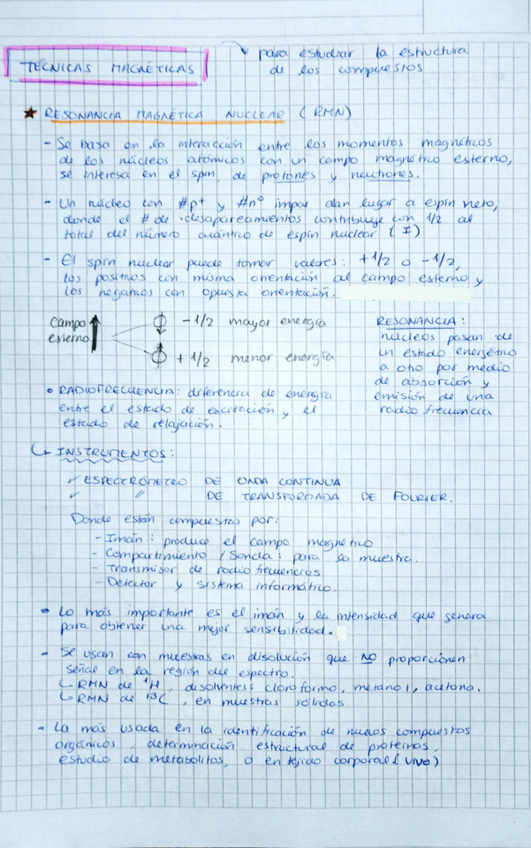 TÉCNICAS MAGNÉTICAS
para estudiar la estructura
de los compuestos
★ RESONANCIA MAGNÉTICA NUCLEAR (RMN)
- Se basa en la interacción entre los momentos magnéticos
de los núcleos atómicos con un campo magnético externo,
se interesa en el spin de protones y neutrones.
- Un núcleo con #p⁺ y #n° impar dan lugar a espín neto,
donde el # de desapareamientos contribuye con 1/2 al
total del número cuántico de espín nuclear (I)
- El spin nuclear puede tomar valores: +1/2 o -1/2,
los positivos con misma orientación al campo externo y
los negativos con opuesta orientación.
Campo
externo
-1/2 mayor energía
+1/2 menor energía
RESONANCIA:
núcleos pasan de
un estado energético
a otro por medio
de absorción y
emisión de una
radiofrecuencia
• RADIOFRECUENCIA: diferencia de energía
entre el estado de excitación y el
estado de relajación.
↳ INSTRUMENTOS:
✓ ESPECTRÓMETRO DE ONDA CONTINUA
✓ " DE TRANSFORMADA DE FOURIER.
Donde están compuestos por:
- Imán: produce el campo magnético
- Compartimiento / Sonda: para la muestra.
- Transmisor de radiofrecuencias
- Detector y sistema informático.
• Lo más importante es el imán y la intensidad que genera
para obtener una mejor sensibilidad.
• Se usan con muestras en disolución que NO proporcionen
señal en la región del espectro.
↳ RMN de ¹H, disolventes: cloroformo, metanol, acetona.
↳ RMN de ¹³C, en muestras sólidas.
- La más usada en la identificación de nuevos compuestos
orgánicos, determinación estructural de proteínas,
estudio de metabolitos, o en tejido corporal (vivo)